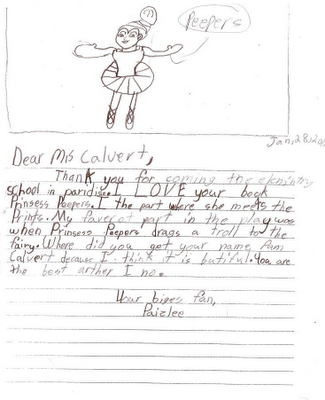 Peepers
Jan, 28, 201
Dear Mis Calvert,
Thank you for coming the elemintry
school in paridise. I LOVE your book
Prinsess Peepers. I the part where she meets the
Prints. My faverot part in the play was
when Prinsess Peepers drags a troll to the
fairy. Where did you get your name Pam
Calvert because I think it is butiful. You are
the best arther I no.
Your biges fan,
Paizlee